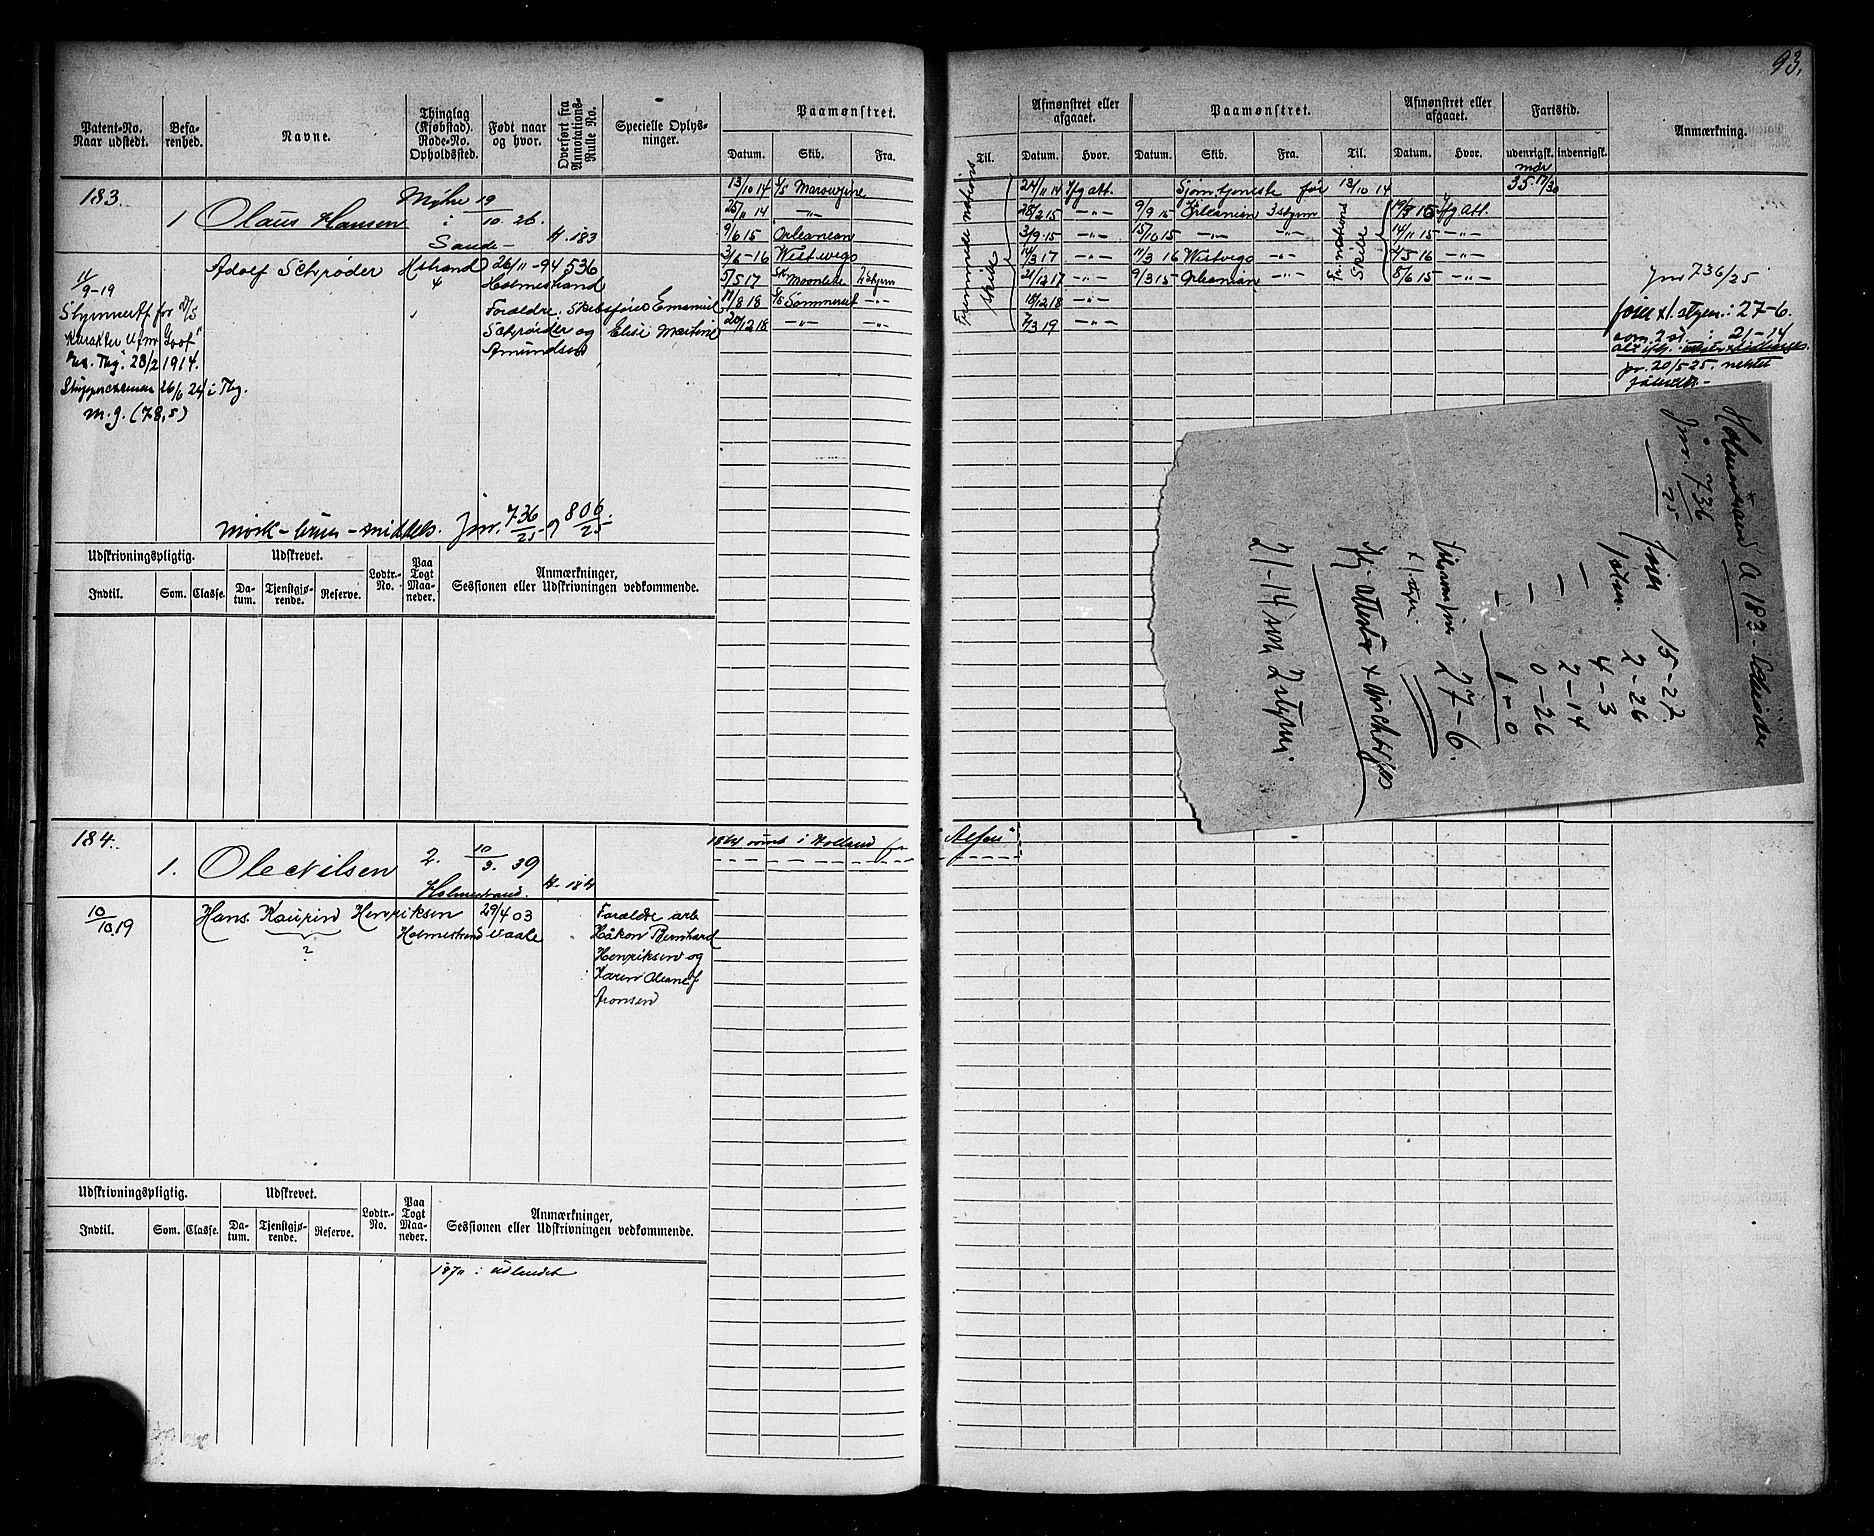 93.
Patent-No. Naar udstedt.
Befarenhed.
Navne.
Thinglag (Kjøbstad). Rode-No. Opholdssted.
Født naar og hvor.
Overført fra Annotations-Rulle No.
Specielle Oplysninger.
Paamønstret.
Datum. Skib. Fra.
Til.
Afmønstret eller afgaaet.
Datum. Hvor.
Paamønstret.
Datum. Skib. Fra. Til.
Afmønstret eller afgaaet.
Datum. Hvor.
Fartstid.
udenrigsk. indenrigsk.
Anmærkning.
183.
1 Olaus Hansen
Myhre i Sande
19/10 26.
A. 183
11/9-19
Adolf Schrøder Hstrand 26/11-94 536
4 Holmestrand
Forældre: Skibsfører Emanuel
Schrøder og Elise Martine
Amundsen
28/2 1914.
26/6 24 i Tbg.
m.g. (78,5)
13/10 14
25/11 14 -"-
9/6 15 Orleanian
3/6-16 Westwego
5/5 17 2 styrm
17/8 18 S/S Sommerset -"-
20/12 18 -"- -"-
Fremmede nations skibe
24/11 14 Ifg att.
28/2 15 -"-
3/9 15 -"-
14/3 17 -"-
21/12 17 -"-
18/12 18 -"-
7/3 19 -"-
Sjømtjeneste før 13/10 14
35 17/30
9/9 15 Orleanian 3 styrm
Ifg Att.
15/10 15 -"- -"-
14/11 15 -"-
11/3 16 Westvego -"-
2/5 16 -"-
9/3 15 Orleanian -"-
8/6 15 -"-
Fr. nations Skibe
Jnr 736/25
27-6.
som 2 st.: 21-14
pr. 20/5 25.
mørk - brun - middels. Jnr. 736/25 og 806/25.
Udskrivningspligtig.
Udskrevet.
Lodtr.-No.
Paa Togt Maaneder.
Anmærkninger, Sessionen eller Udskrivningen vedkommende.
Indtil. Som. Classe. Datum. Tjenstgjørende. Reserve.
Holmestrand A 183 Schrøder
Jnr. 736/25
15-27
2-26
4-3
2-14
0-26
1-0
27-6.
21-14 som 2 styrm
184.
1. Ole Nilsen
2. 10/3. 39
Holmestrand.
A. 184
1864 rømt i Holland fr "Alfen"
10/10.19
Hans Kaurin Henriksen 29/4 03
?
Holmestrand Vaale
Forældre arb.
Håkon Bernhard
Henriksen og
Karen Oleane f
Aronsen
Udskrivningspligtig.
Udskrevet.
Lodtr.-No.
Paa Togt Maaneder.
Anmærkninger, Sessionen eller Udskrivningen vedkommende.
Indtil. Som. Classe. Datum. Tjenstgjørende. Reserve.
1870 i udlandet